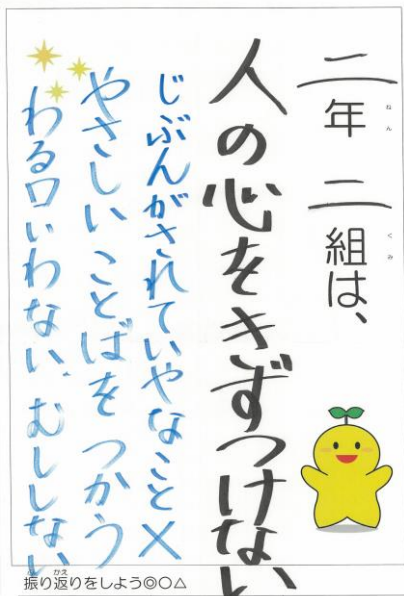 二年 二組は、
人の心をきずつけない
じぶんがされていやなこと×
やさしい ことばを つかう
わる口いわない、むししない
振り返りをしよう◎○△